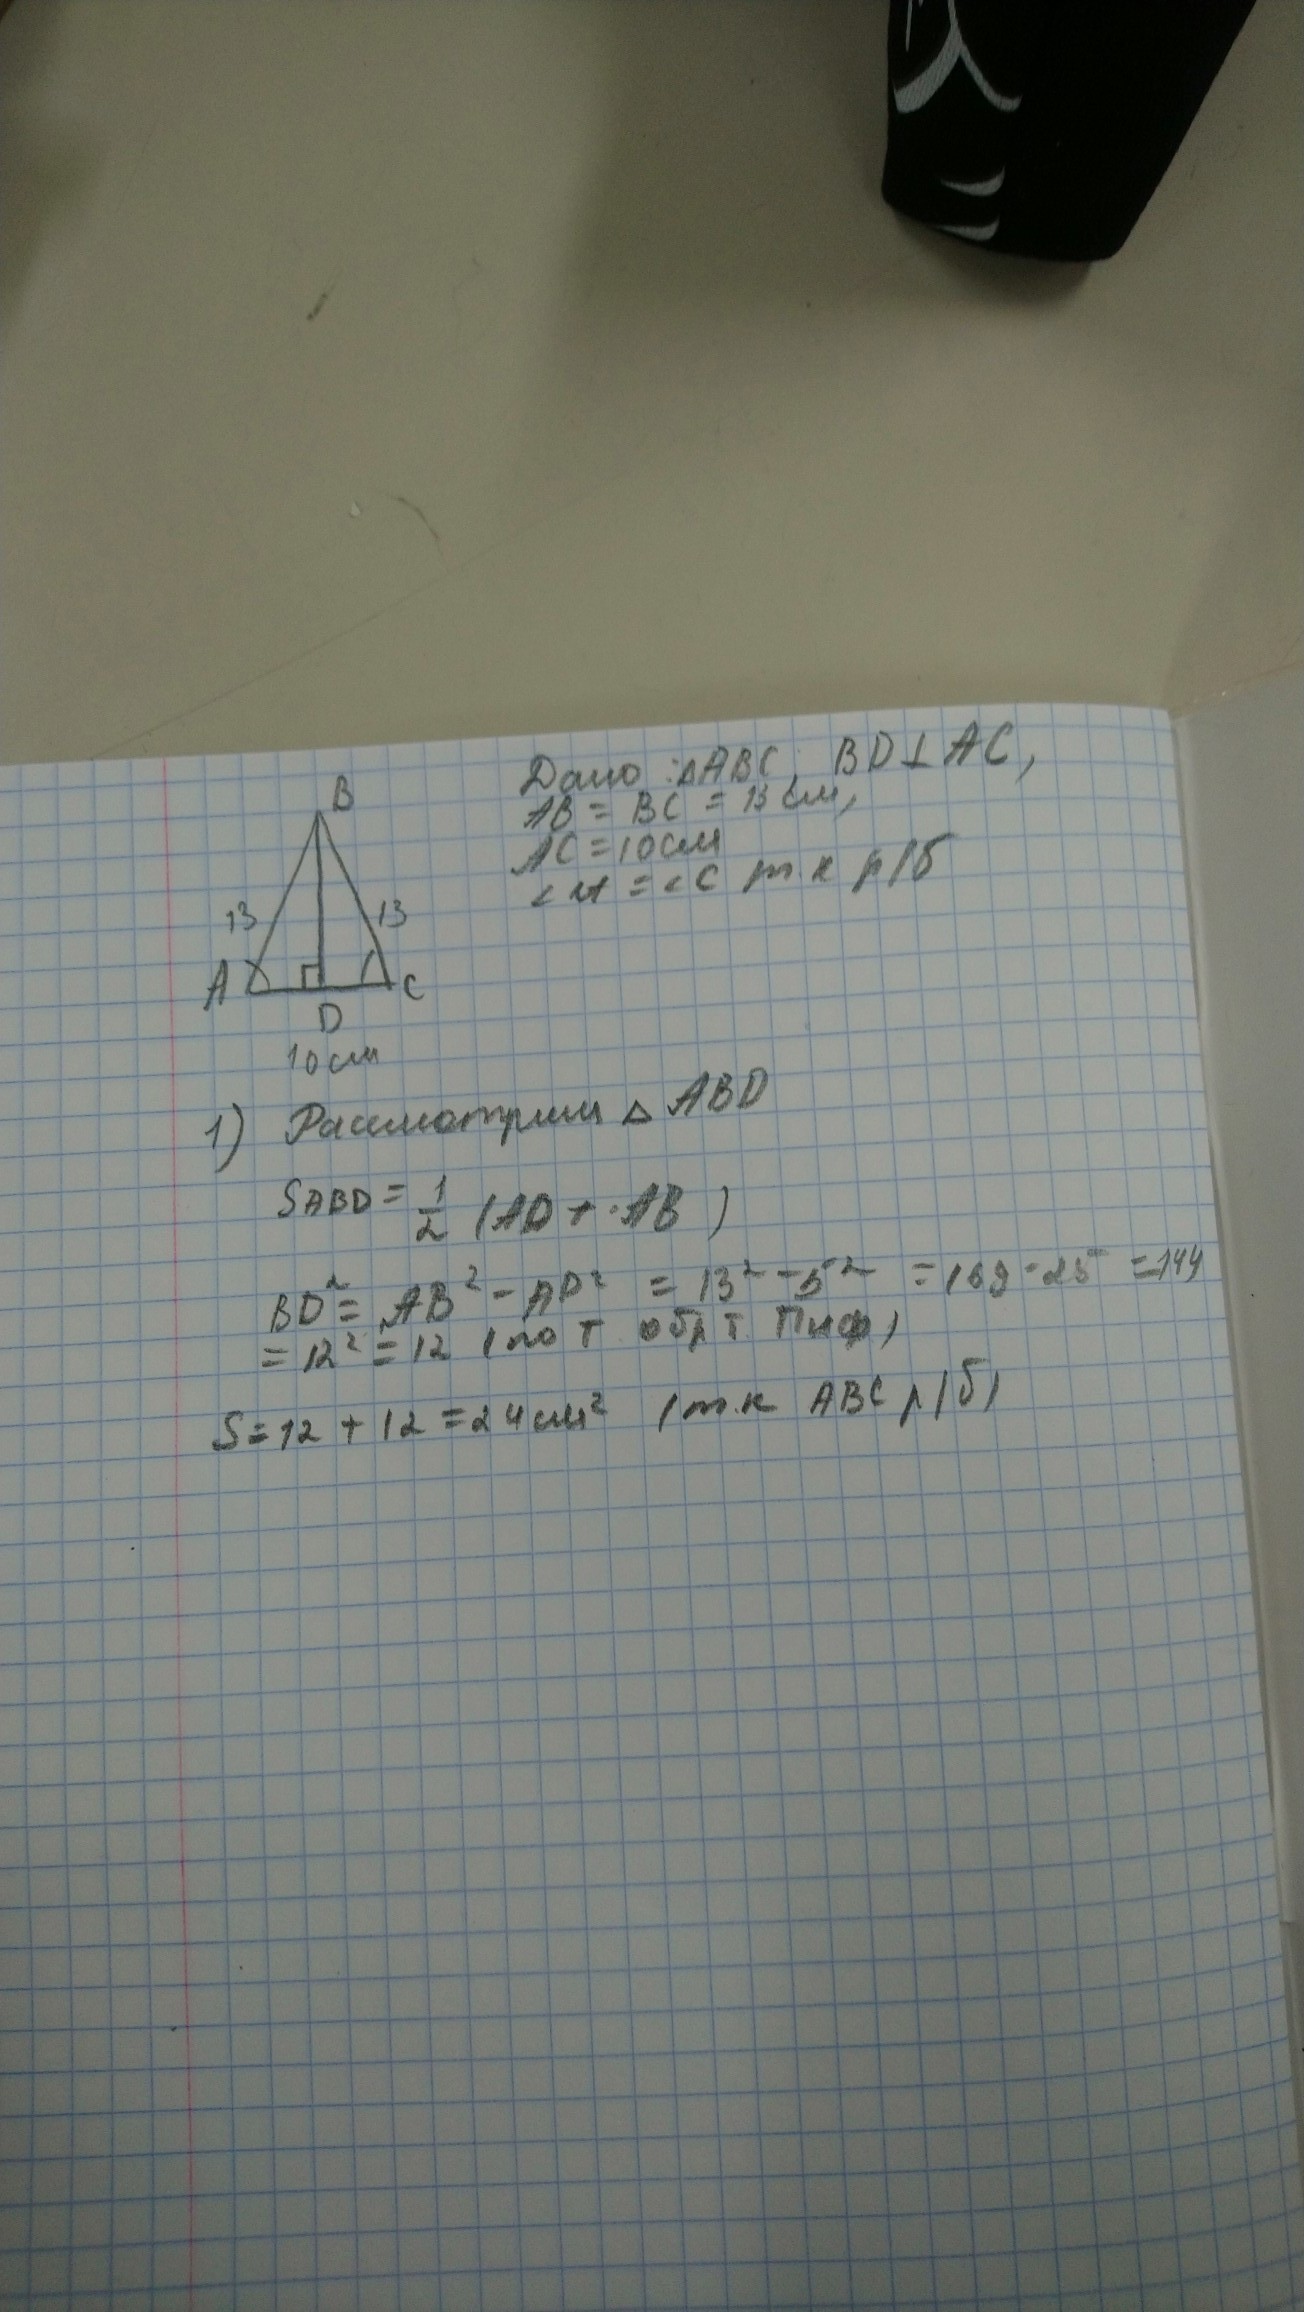 B
13
13
A
C
D
10 см
Дано : △ABC, BD⊥AC,
AB = BC = 13 см,
AC = 10 см
∠A = ∠C т.к р/б
1) Рассмотрим △ ABD
SABD = 1/2 (AD + ·AB)
BD² = AB² - AD² = 13² - 5² = 169 - 25 = 144
= 12² = 12 (по т обр т Пиф)
S = 12 + 12 = 24 см² (т.к ABC р/б)